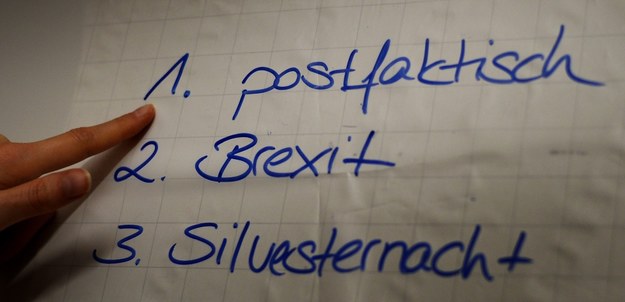 1. postfaktisch
2. Brexit
3. Silvesternacht